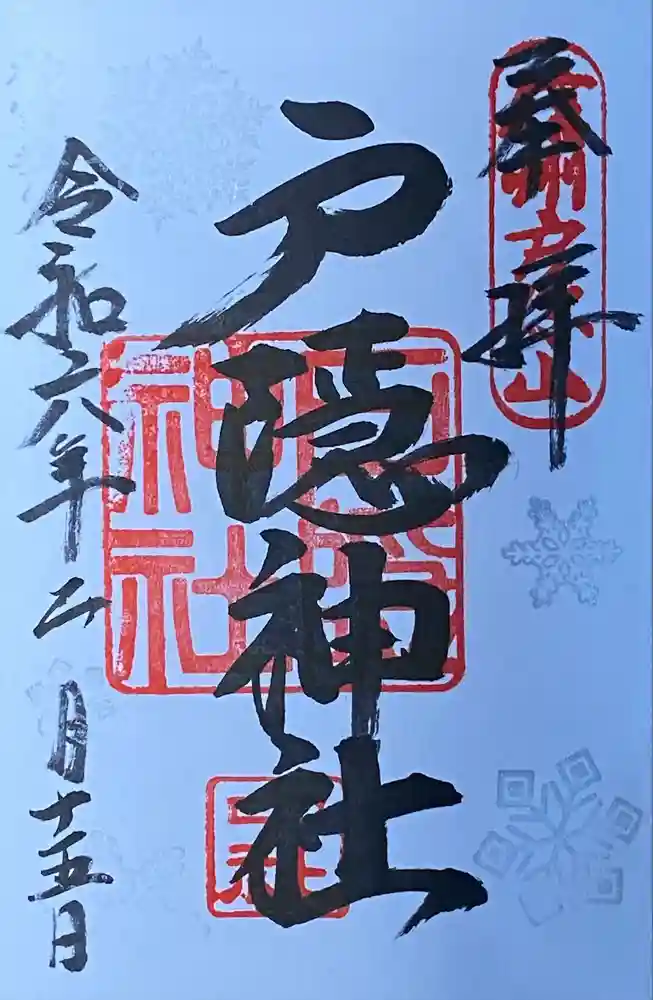 奉拝
戸隠神社
令和六年二月十五日